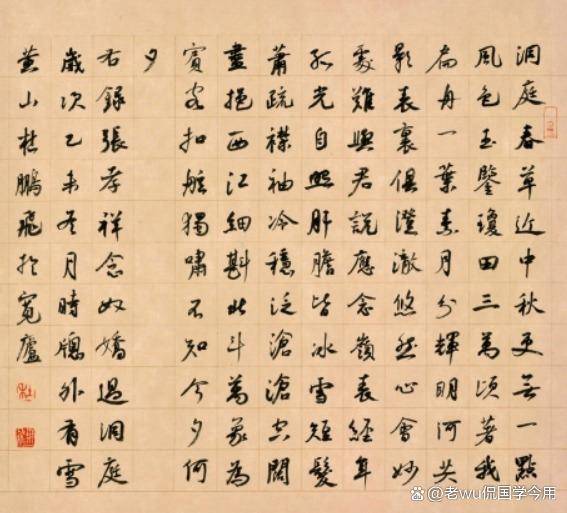 洞庭春草近中秋更無一點
風色玉鑒瓊田三萬頃著我
扁舟一葉素月分輝明河共
影表裏俱澄澈悠然心會妙
處難與君說應念嶺表經年
孤光自照肝膽皆冰雪短髮
蕭疏襟袖冷穩泛滄滄空闊
盡挹西江細斟北斗萬象為
賓客扣舷獨嘯不知今夕何
夕
右錄張孝祥念奴嬌過洞庭
歲次乙未冬月時牕外有雪
黃山杜鵬飛於寬廬
老wu侃国学今用